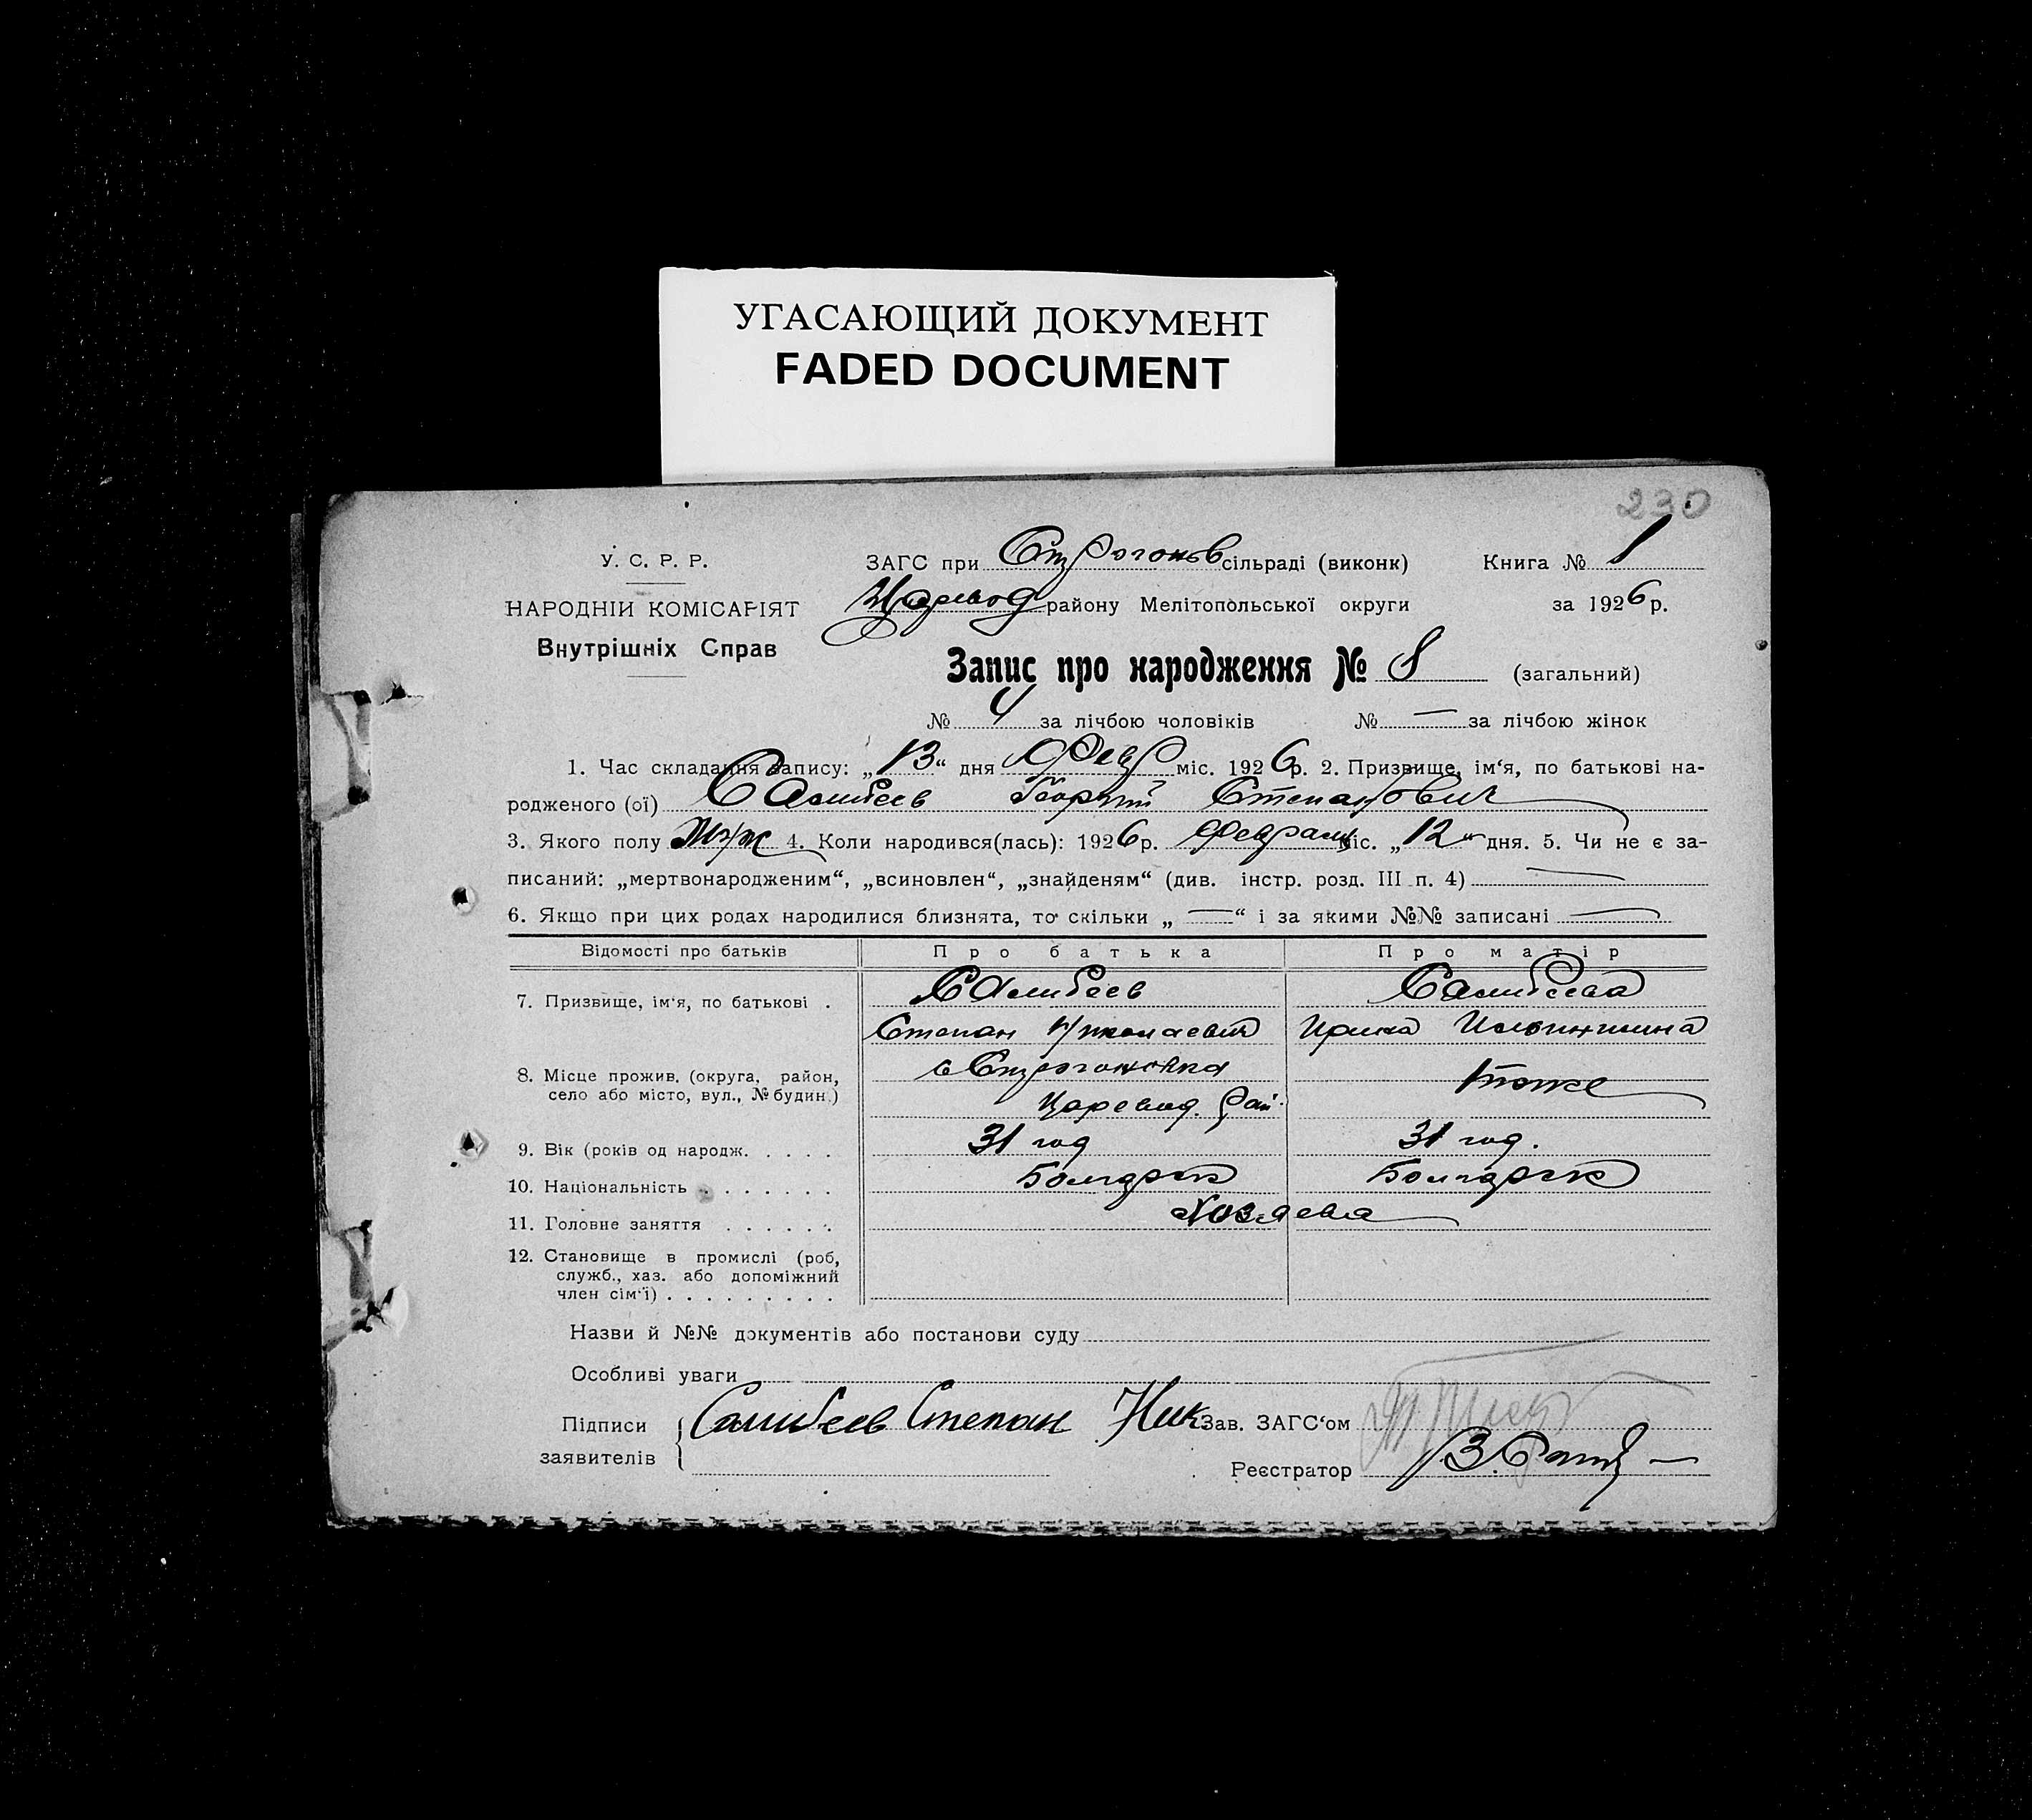 УГАСАЮЩИЙ ДОКУМЕНТ
FADED DOCUMENT
230
У. С. Р. Р.
НАРОДНІЙ КОМІСАРІЯТ
Внутрішніх Справ
ЗАГС при Строгонов сільраді (виконк) Книга № 1
Царевод району Мелітопольської округи за 1926 р.
Запис про народження № 8 (загальний)
№ 4 за лічбою чоловіків № — за лічбою жінок
1. Час складання запису: „13“ дня Февр міс. 1926 р. 2. Призвище, ім‘я, по батькові на-
родженого (ої) Салибеев Георгий Степанович
3. Якого полу Муж 4. Коли народився(лась): 1926 р. Февраля міс. „12“ дня. 5. Чи не є за-
писаний: „мертвонародженим“, „всиновлен“, „знайденям“ (див. інстр. розд. III п. 4) —
6. Якщо при цих родах народилися близнята, то скільки „ — “ і за якими №№ записані —
Відомості про батьків Про батька Про матір
7. Призвище, ім‘я, по батькові . Салибеев Салибеева
Степан Николаевич Ирина Ильинишна
8. Місце прожив. (округа, район, село або місто, вул., № будин.) с Строгоновка тоже
Царевод. рай.
9. Вік (років од народж. . . . . 31 год 31 год.
10. Національність . . . . . . . Болгарск Болгарск
11. Головне заняття . . . . . . Хозяева
12. Становище в промислі (роб,
служб., хаз. або допоміжний
член сім‘ї) . . . . . . . . .
Назви й №№ документів або постанови суду
Особливі уваги
Підписи заявителів Салибеев Степан Ник Зав. ЗАГС‘ом
Реєстратор